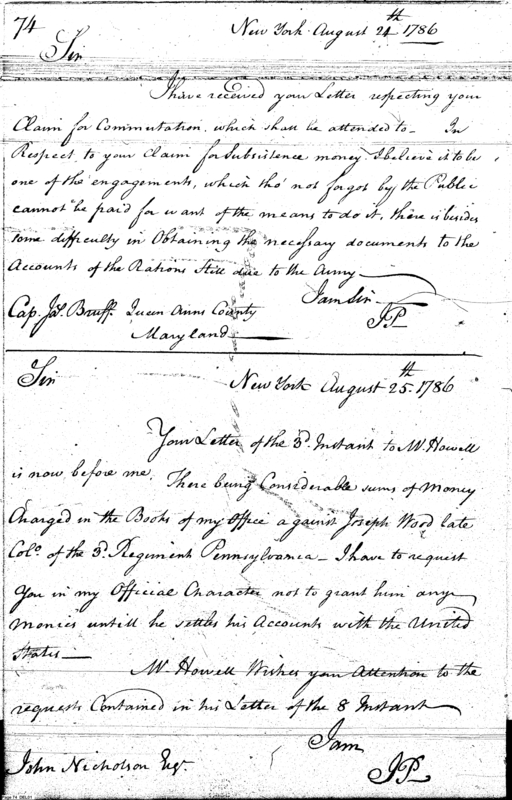 74
New York August 24th 1786
Sir
I have received your Letter respecting your
Claim for Commutation, which shall be attended to— In
Respect to your Claim for Subsistence money I believe it to be
one of the engagements, which tho' not forgot by the Public
cannot be paid for want of the means to do it, there is besides
some difficulty in Obtaining the necessary documents to the
Accounts of the Rations Still due to the Army—
I am Sir
JP
Cap. Jas. Bruff. Queen Anns County
Maryland
Sir
New York August 25th. 1786
Your Letter of the 3d. Instant to Mr. Howell
is now before me. There being Considerable sums of Money
Charged in the Books of my Office against Joseph Wood late
Colo. of the 3d. Regiment Pennsylvania— I have to request
You in my Official Character not to grant him any
monies untill he settles his Accounts with the United
States—
Mr. Howell Wishes your Attention to the
requests Contained in his Letter of the 8 Instant
I am
JP
John Nicholson Esqr.